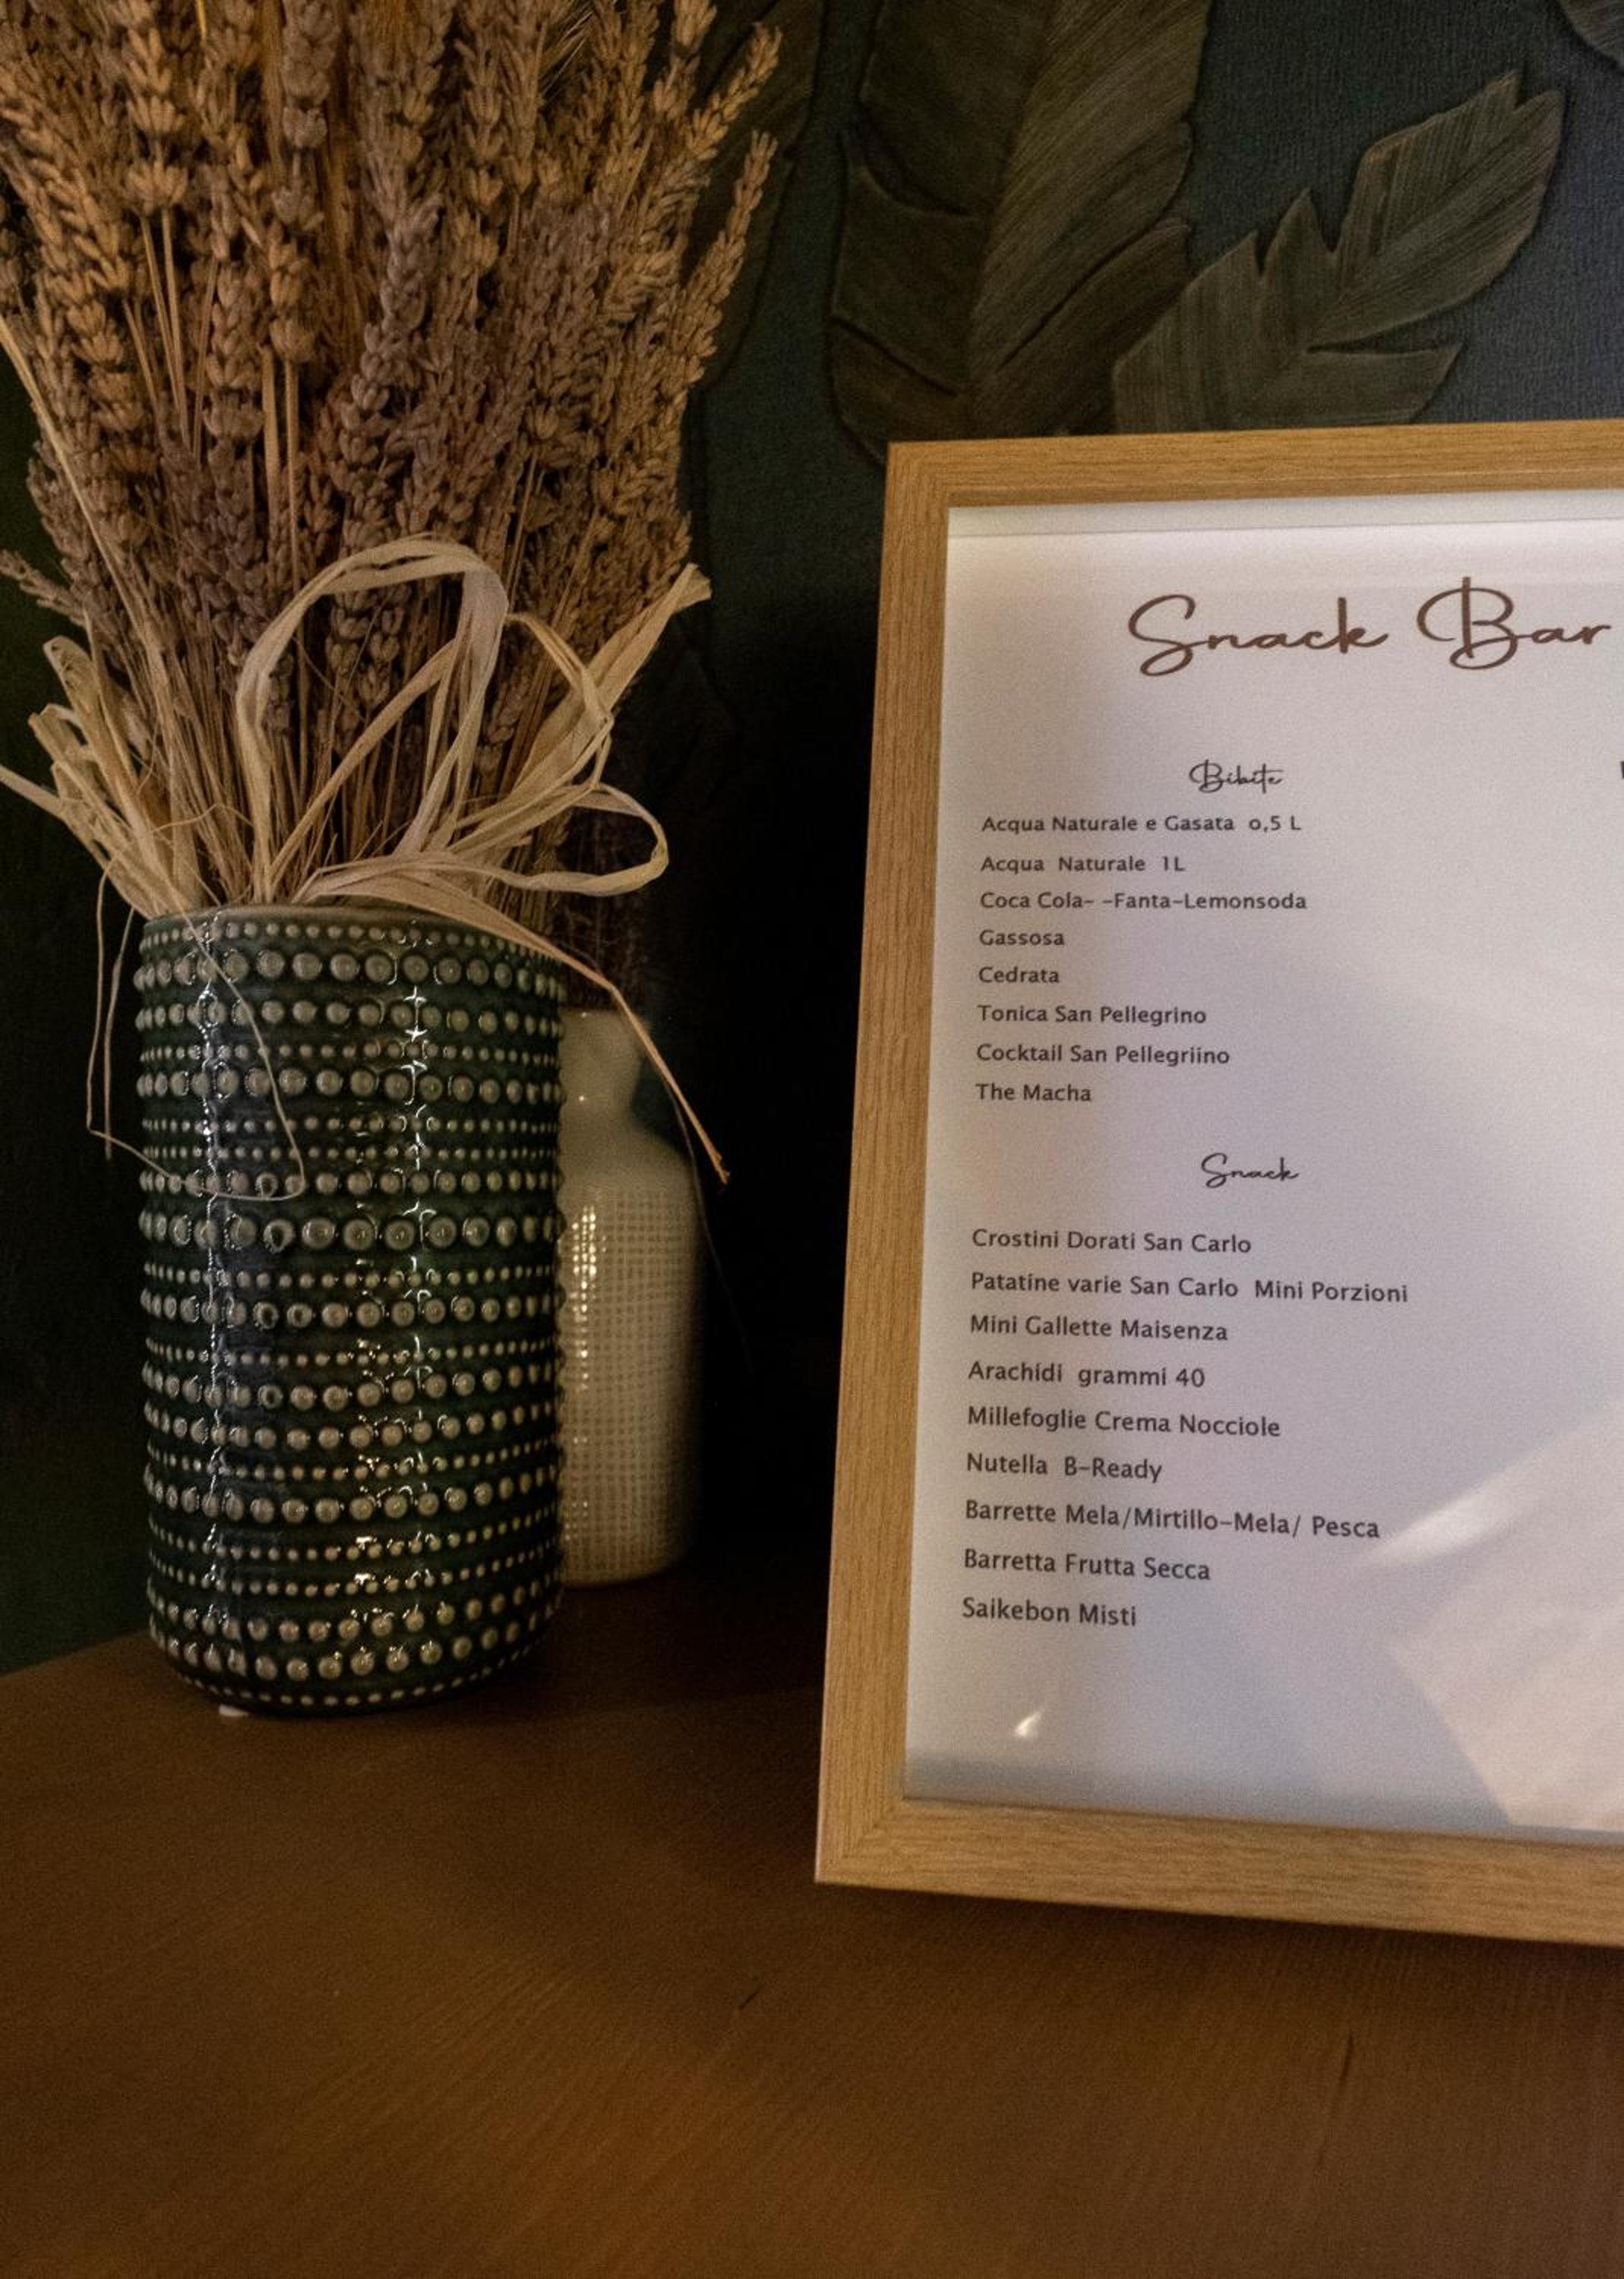 Snack Bar
Bibite
Acqua Naturale e Gasata 0,5 L
Acqua Naturale 1L
Coca Cola- -Fanta-Lemonsoda
Gassosa
Cedrata
Tonica San Pellegrino
Cocktail San Pellegriino
The Macha
Snack
Crostini Dorati San Carlo
Patatine varie San Carlo Mini Porzioni
Mini Gallette Maisenza
Arachidi grammi 40
Millefoglie Crema Nocciole
Nutella B-Ready
Barrette Mela/Mirtillo-Mela/ Pesca
Barretta Frutta Secca
Saikebon Misti